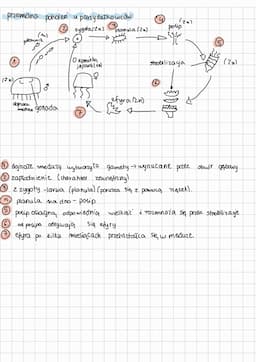 przemiana pokoleń u parzydełkowców
① ② zygota (2n) ③ planula (2n) ④ (2n) polip
plemnik (n)
(2n)
komórka jajowa (n)
strobilizacja (2n) ⑤
dojrzała meduza gonada
efyra (2n) ⑥
⑦
① dojrzałe meduzy wytwarzają gamety → wyrzucane przez otwór gębowy
② zapłodnienie (charakter zewnętrzny)
③ z zygoty - larwa (planula) (porusza się z pomocą rzęsek).
④ planula na dno - polip
⑤ polip osiągając odpowiednią wielkość i rozmnaża się przez strobilizację
⑥ od polipa odrywają się efyry
⑦ efyra po kilku miesiącach przekształca się w meduzę